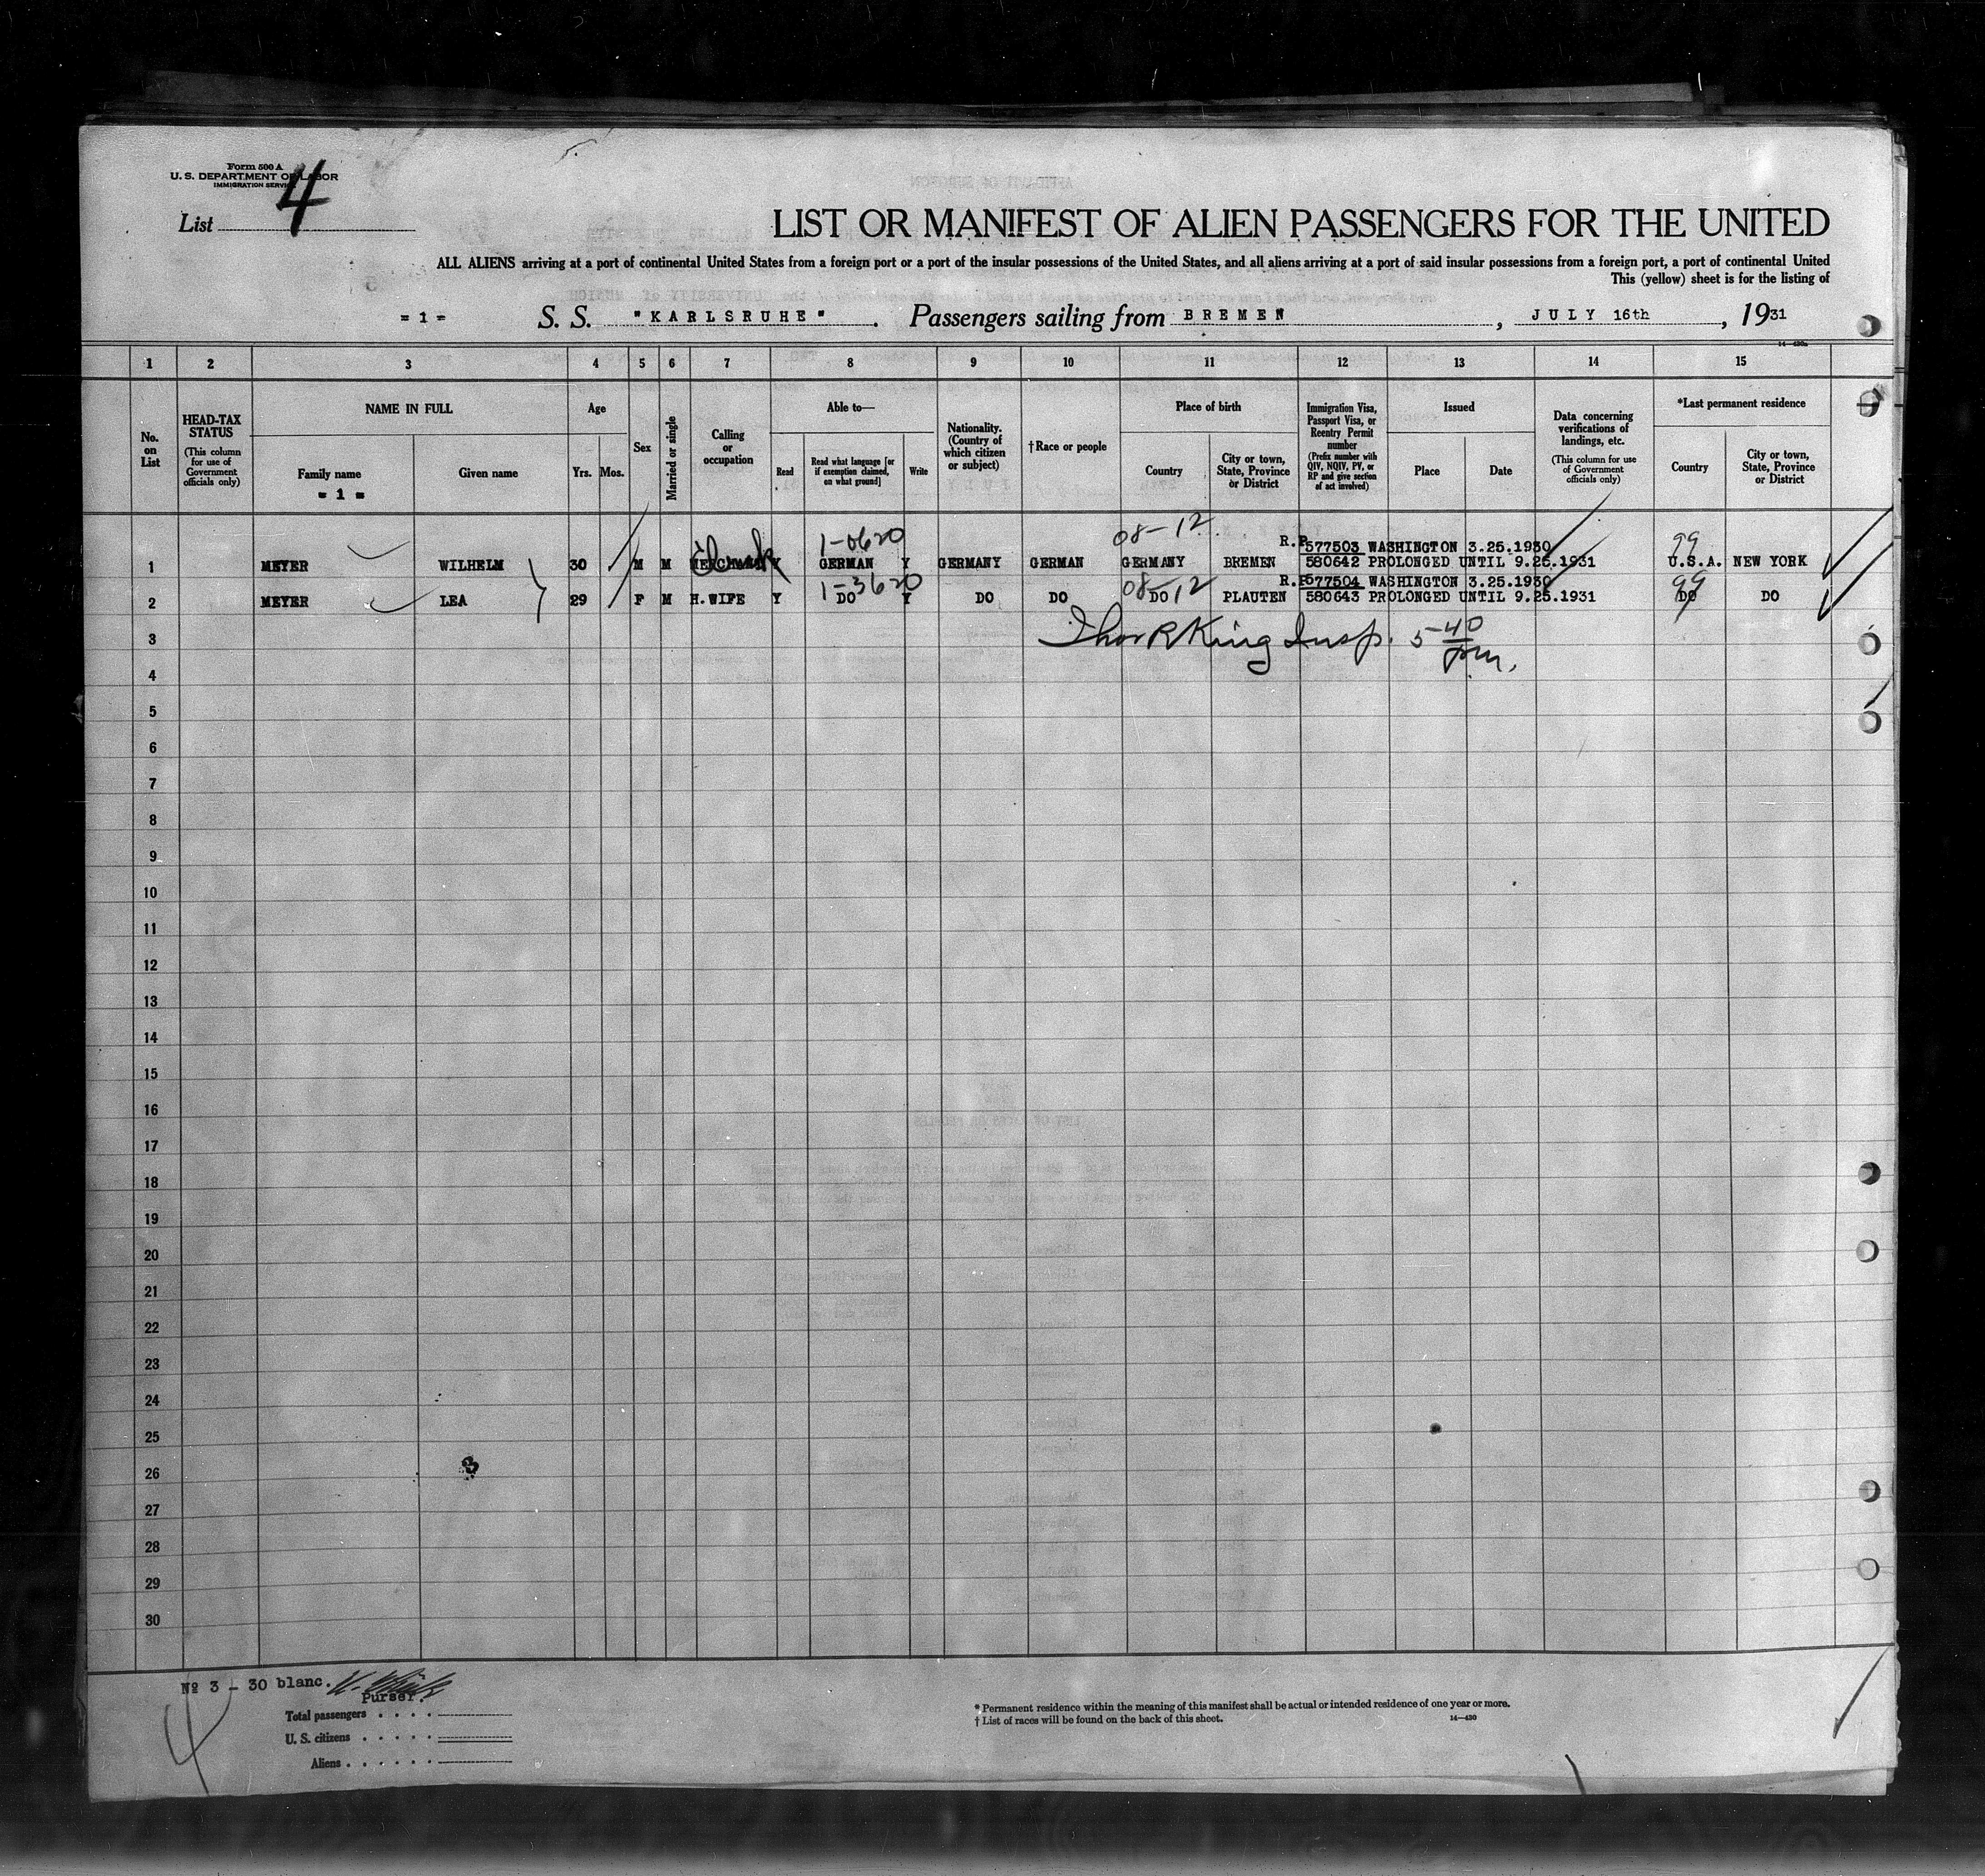 Form 500 A
U. S. DEPARTMENT OF LABOR
IMMIGRATION SERVICE
List 4
LIST OR MANIFEST OF ALIEN PASSENGERS FOR THE UNITED
ALL ALIENS arriving at a port of continental United States from a foreign port or a port of the insular possessions of the United States, and all aliens arriving at a port of said insular possessions from a foreign port, a port of continental United
This (yellow) sheet is for the listing of
= 1 = S. S. "KARLSRUHE". Passengers sailing from BREMEN, JULY 16th, 1931
14—430a
1 2 3 4 5 6 7 8 9 10 11 12 13 14 15
No. on List
HEAD-TAX STATUS
(This column for use of Government officials only)
NAME IN FULL
Family name
= 1 =
Given name
Age
Yrs. Mos.
Sex
Married or single
Calling or occupation
Able to—
Read
Read what language [or if exemption claimed, on what ground]
Write
Nationality. (Country of which citizen or subject)
†Race or people
Place of birth
Country
City or town, State, Province or District
Immigration Visa, Passport Visa, or Reentry Permit number
(Prefix number with QIV, NQIV, PV, or RP and give section of act involved)
Issued
Place
Date
Data concerning verifications of landings, etc.
(This column for use of Government officials only)
*Last permanent residence
Country
City or town, State, Province or District
1-0620 08-12 R.P. 577503 WASHINGTON 3.25.1930 99
1 MEYER WILHELM 30 M M MERCHANT Clerk Y GERMAN Y GERMANY GERMAN GERMANY BREMEN 580642 PROLONGED UNTIL 9.25.1931 U.S.A. NEW YORK
1-3620 08-12 R.P. 577504 WASHINGTON 3.25.1930 99
2 MEYER LEA 29 F M H.WIFE Y DO Y DO DO DO PLAUTEN 580643 PROLONGED UNTIL 9.25.1931 DO DO
3 Thor R King Insp. 5-40 pm.
4
5
6
7
8
9
10
11
12
13
14
15
16
17
18
19
20
21
22
23
24
25
26
27
28
29
30
№ 3 - 30 blanc.
Purser.
4
Total passengers
U. S. citizens
Aliens
* Permanent residence within the meaning of this manifest shall be actual or intended residence of one year or more.
† List of races will be found on the back of this sheet.
14—430